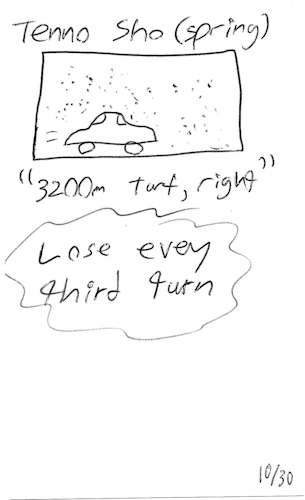 Tenno Sho (spring)
"3200m turf, right"
Lose evey
third turn
10/30